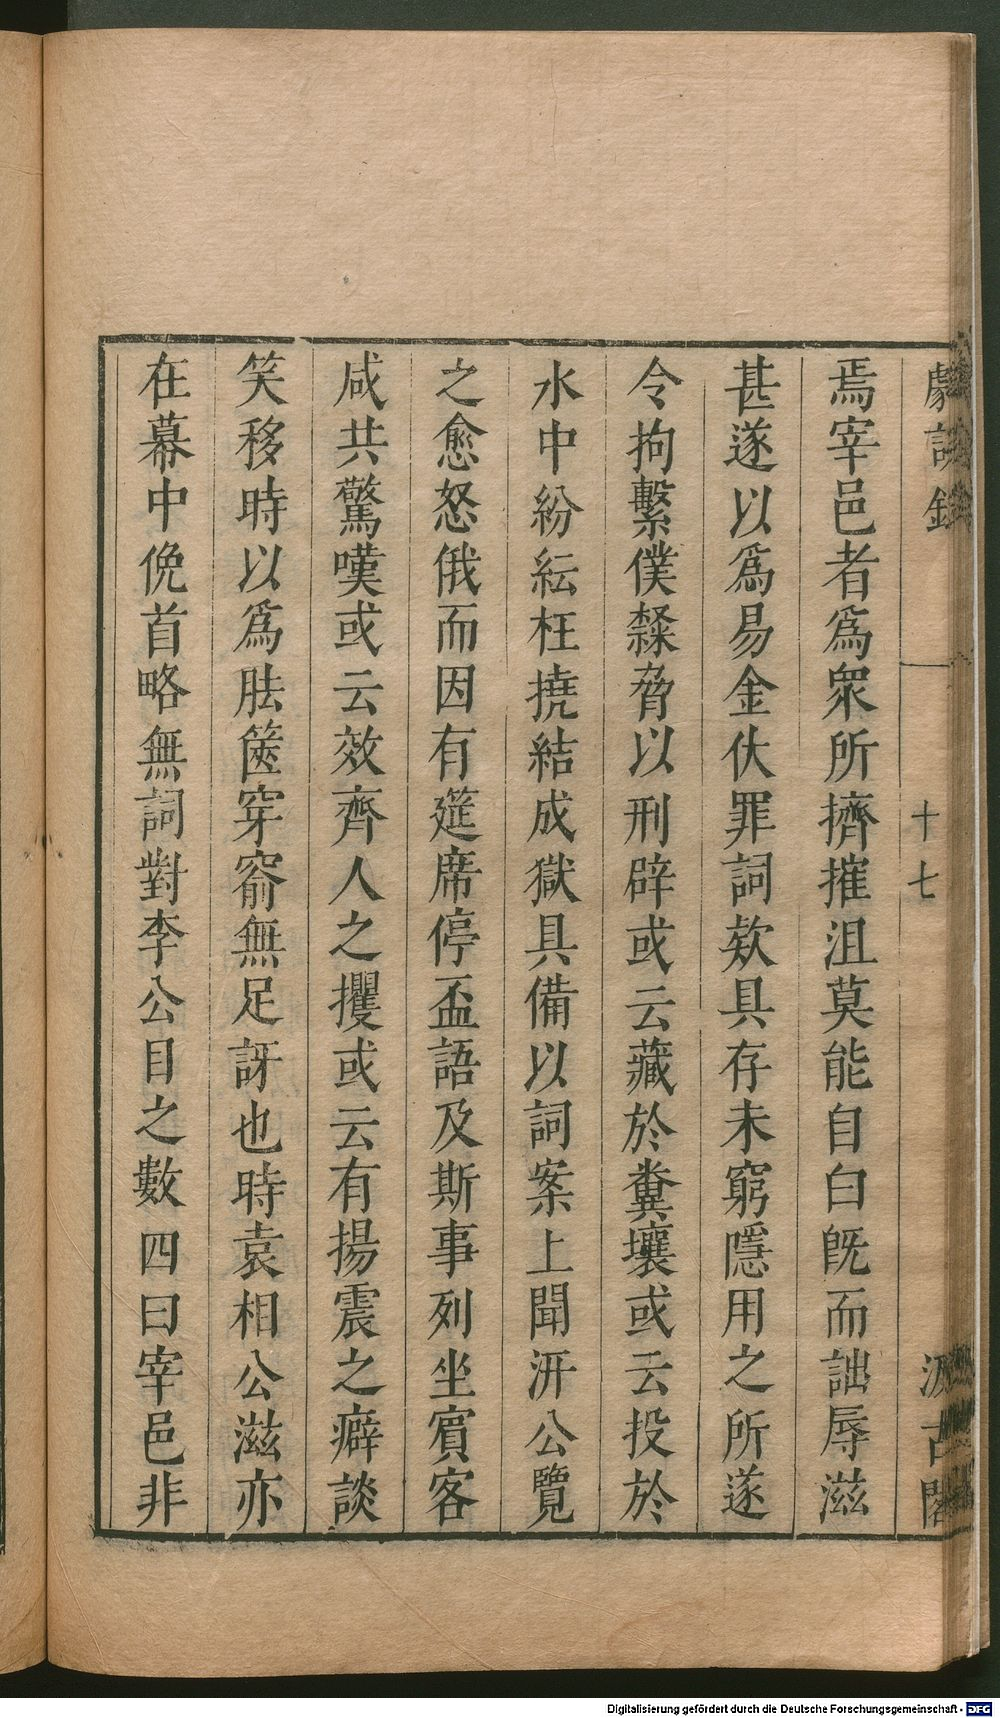 劇談錄
十七
汲古閣
焉宰邑者爲衆所擠摧沮莫能自白旣而詘辱滋
甚遂以爲易金伏罪詞欵具存未窮隱用之所遂
令拘繫僕隸脅以刑辟或云藏於糞壤或云投於
水中紛紜枉撓結成獄具備以詞案上聞汧公覽
之愈怒俄而因有筵席停盃語及斯事列坐賓客
咸共驚嘆或云效齊人之攫或云有揚震之癖談
笑移時以爲胠篋穿窬無足訝也時袁相公滋亦
在幕中俛首略無詞對李公目之數四曰宰邑非
Digitalisierung gefördert durch die Deutsche Forschungsgemeinschaft - DFG